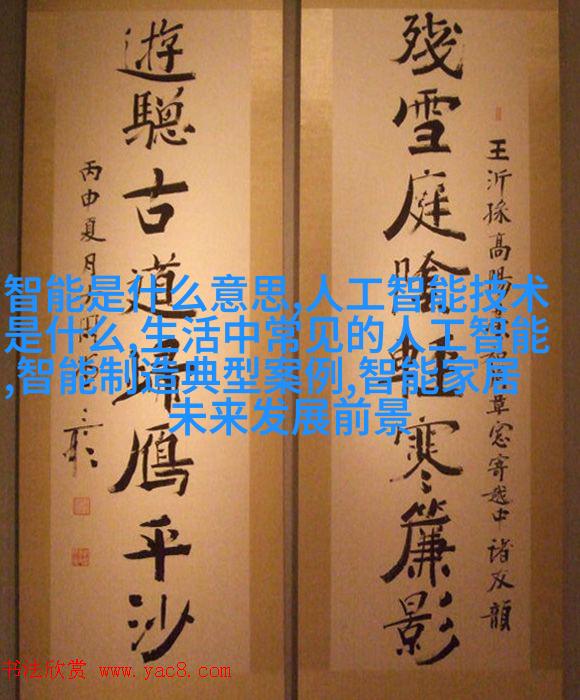 殘雪庭陰輕寒簾影
王沂孫高陽臺和周草窓寄越中諸友韻
遊驄古道歸鴈平沙
丙申夏月
智能是什么意思,人工智能技术
是什么,生活中常见的人工智能
,智能制造典型案例,智能家居
未来发展前景
书法欣赏 www.yac8.com